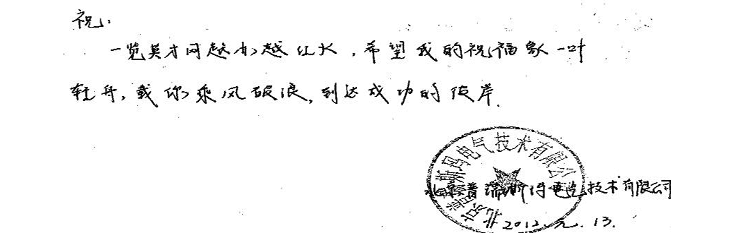 祝:
一览英才网越办越红火，希望我的祝福象一叶
轻舟，载你乘风破浪，到达成功的彼岸.
北京普瑞斯玛电气技术有限公司
北京普瑞斯玛电气技术有限公司
2012.元.13.